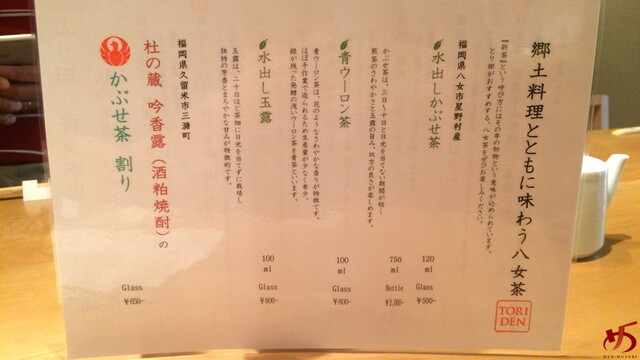 郷土料理とともに味わう八女茶
『新茶』という呼び方にはその年の初物という意味が込められています。
とり田がおすすめする、八女茶をぜひお楽しみください。
TORI
DEN
福岡県八女市星野村産
水出しかぶせ茶
かぶせ茶は、三日〜十日と日光を当てない期間が短く
煎茶のさわやかさと玉露の旨み、双方の良さが楽しめます。
120
ml
Glass
¥500-
750
ml
Bottle
¥2,000-
青ウーロン茶
青ウーロン茶は、花のようなさわやかな香りが特徴です。
ほぼ手作業で造られるため生産量が少なく希少。
緑が残った発酵の浅いウーロン茶を青茶といいます。
100
ml
Glass
¥600-
水出し玉露
玉露は、二十日ほど茶畑に日光を当てずに栽培し
独特の芳香とまろやかな甘みが特徴的です。
100
ml
Glass
¥800-
福岡県久留米市三潴町
杜の蔵 吟香露(酒粕焼酎)の
かぶせ茶 割り
Glass
¥650-
MEN-MUSUBI